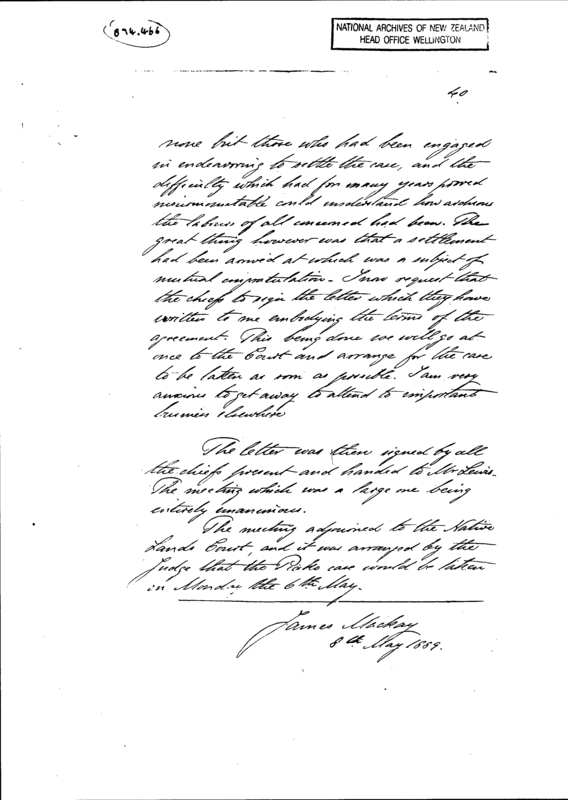 874.466
NATIONAL ARCHIVES OF NEW ZEALAND
HEAD OFFICE WELLINGTON
40
none but those who had been engaged
in endeavoring to settle the case, and the
difficulty which had for many years proved
insurmountable could understand how arduous
the labours of all concerned had been. The
great thing however was that a settlement
had been arrived at which was a subject of
mutual congratulation - I now request that
the chiefs to sign the letter which they have
written to me embodying the terms of the
agreement. This being done we will go at
once to the Court and arrange for the case
to be taken as soon as possible. I am very
anxious to get away to attend to important
business elsewhere
The letter was then signed by all
the chiefs present and handed to Mr Lewis.
The meeting which was a large one being
entirely unanimous.
The meeting adjourned to the Native
Lands Court, and it was arranged by the
Judge that the case would be taken
on Monday the 6th May.
James Mackay
8th May 1889.